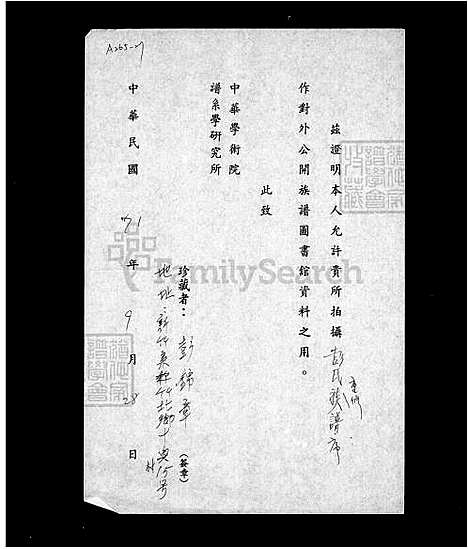 A265-27
茲證明本人允許貴所拍攝彭氏族譜序
作對外公開族譜圖書館資料之用。
此致
中華學術院
譜系學研究所
珍藏者：彭錦章（簽章）
地址：新竹縣竹北鄉
15号
中華民國71年9月28日
FamilySearch